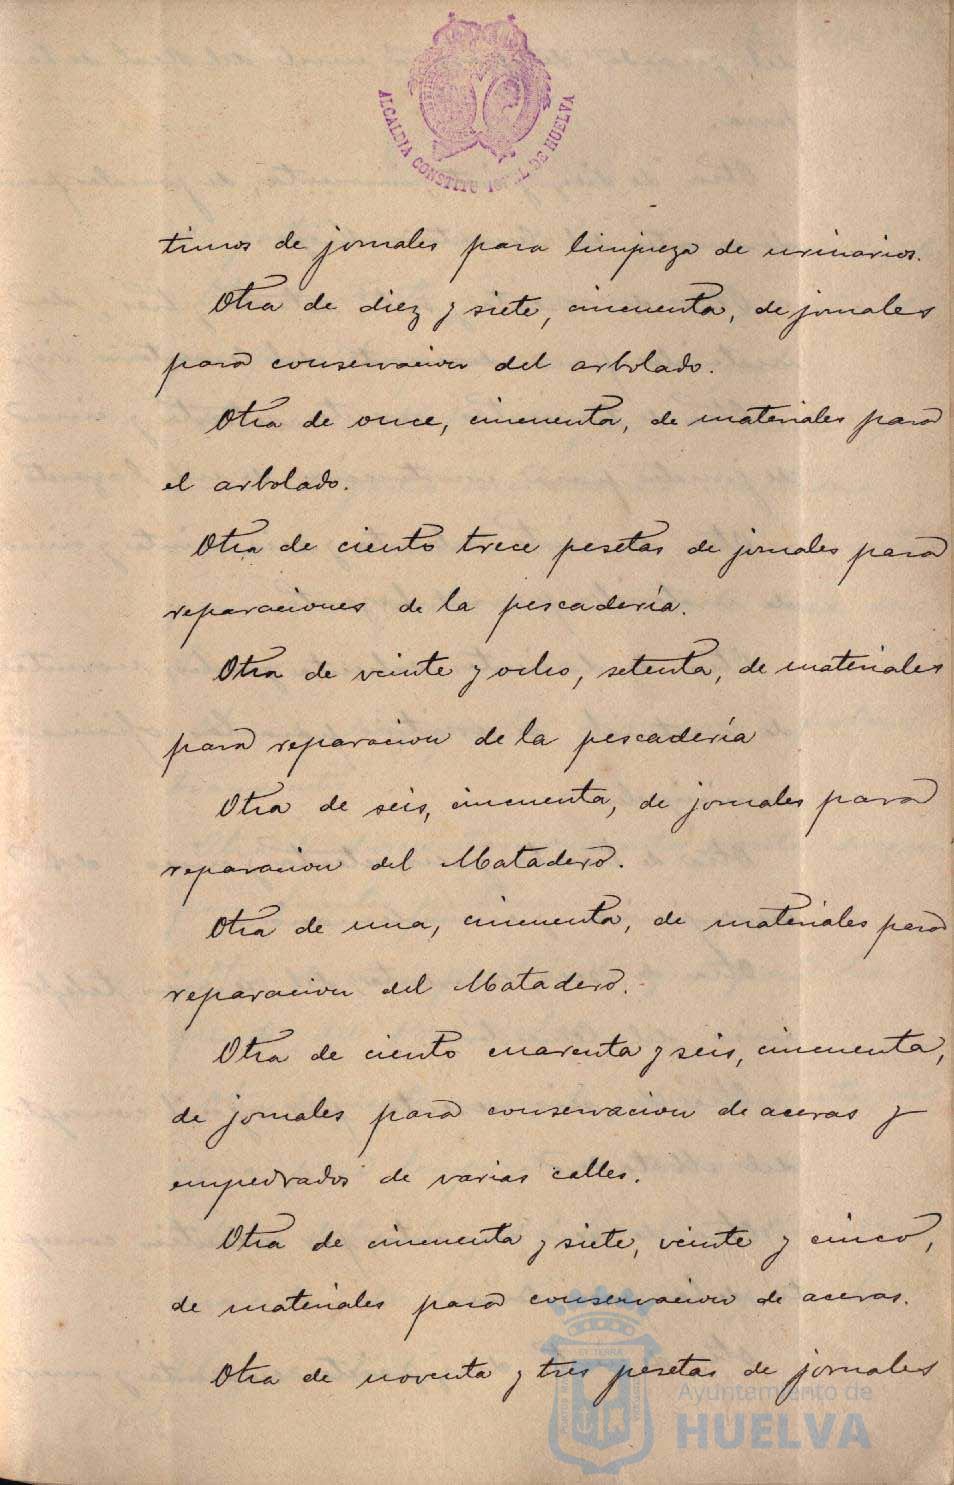 ALCALDIA CONSTITU L DE HUELVA
timos de jornales para limpieza de urinarios.
Otra de diez y siete, cincuenta, de jornales
para conservacion del arbolado.
Otra de once, cincuenta, de materiales para
el arbolado.
Otra de ciento trece pesetas de jornales para
reparaciones de la pescadería.
Otra de veinte y ocho, setenta, de materiales
para reparacion de la pescadería
Otra de seis, cincuenta, de jornales para
reparacion del Matadero.
Otra de una, cincuenta, de materiales para
reparacion del Matadero.
Otra de ciento cuarenta y seis, cincuenta,
de jornales para conservacion de aceras y
empedrados de varias calles.
Otra de cincuenta y siete, veinte y cinco,
de materiales para conservacion de aceras.
Otra de noventa y tres pesetas de jornales
Ayuntamiento de
HUELVA